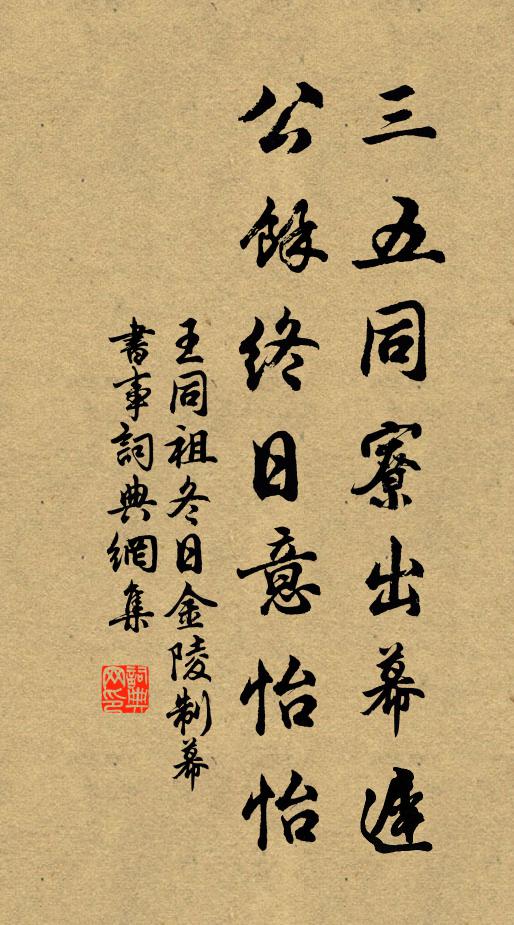 三五同寮出幕遲
公餘終日意怡怡
王同祖冬日金陵制幕
書事詞典網集
詞典网印